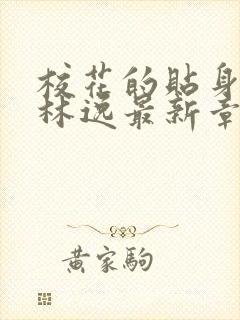 校花的贴身
林逸最新章
黄家驹